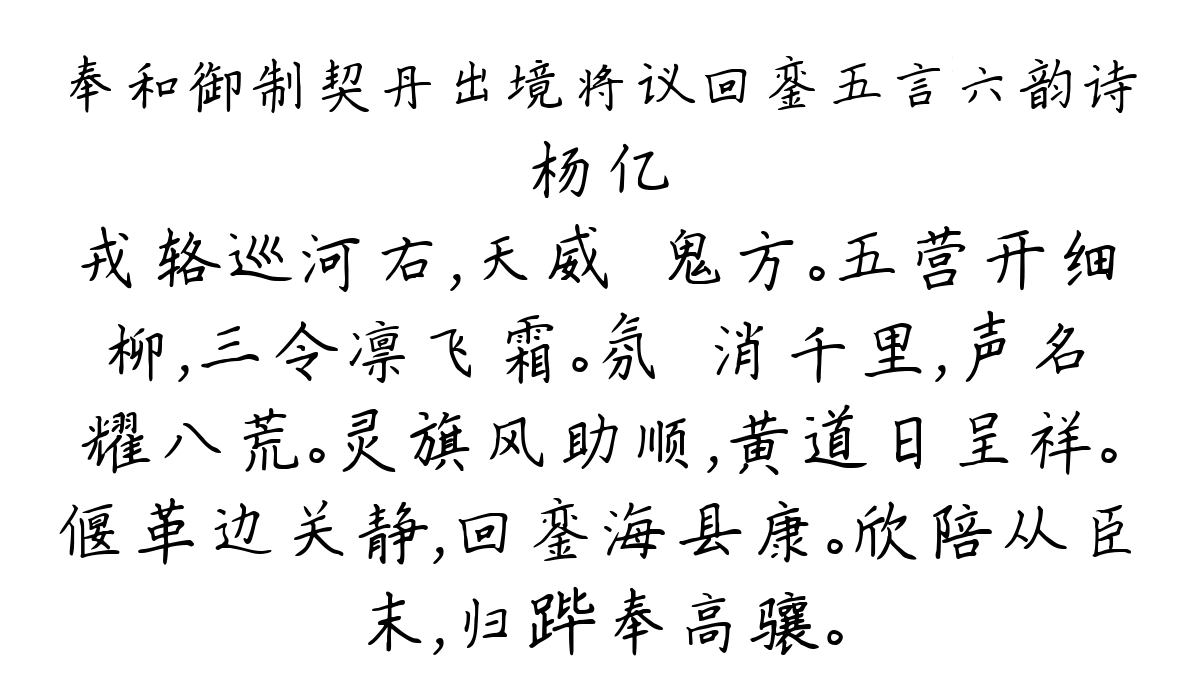 奉和御制契丹出境将议回銮五言六韵诗
杨亿
戎辂巡河右,天威 鬼方。五营开细
柳,三令凛飞霜。氛 消千里,声名
耀八荒。灵旗风助顺,黄道日呈祥。
偃革边关静,回銮海县康。欣陪从臣
末,归跸奉高骧。